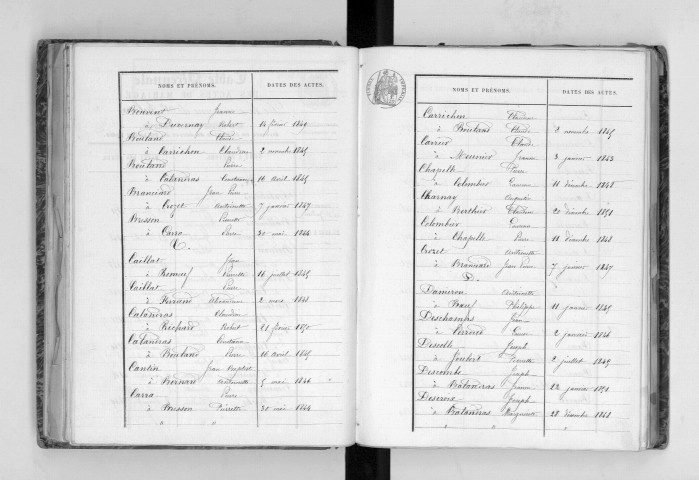 NOMS ET PRÉNOMS. DATES DES ACTES.
Bonvent Jeanne
à Duvernay Robert 14 février 1849
Boutand Claude
à Carrichon Claudine 2 novembre 1845
Boutand Pierre
à Catandras 16 Avril 1845
Branciard Jean Pierre
à Crozet Antoinette 7 janvier 1847
Brosson Pierrette
à Carra Pierre 30 mai 1844
C.
Caillat Jean
à Romeuf Pierrette 16 juillet 1845
Caillat Pierre
à Ferrand 2 mars 1848
Catandras Claudine
à Brichard Robert 11 février 1850
Catandras
à Boutand Pierre 16 Avril 1845
Cantin Jean Baptiste
à Bernard Antoinette 5 mai 1846
Carra Pierre
à Brosson Pierrette 30 mai 1844
NOMS ET PRÉNOMS. DATES DES ACTES.
Carrichon Claudine
à Boutand Claude 8 novembre 1845
Carrier Claude
à Meunier 3 janvier 1843
Chapelle Pierre
à Colombier 11 décembre 1848
Charnay
à Berthier 20 décembre 1851
Colombier
à Chapelle Pierre 11 décembre 1848
Crozet Antoinette
à Branciard Jean Pierre 7 janvier 1847
D.
Dameron Antoinette
à Philippe 11 janvier 1845
Deschamps Jean
à Perroud 2 janvier 1846
Joseph
à Joubert Pierrette 2 juillet 1845
Descombe Joseph
à Catandras Jeanne 22 janvier 1851
Descroix Joseph
à Catandras Marguerite 28 décembre 1848